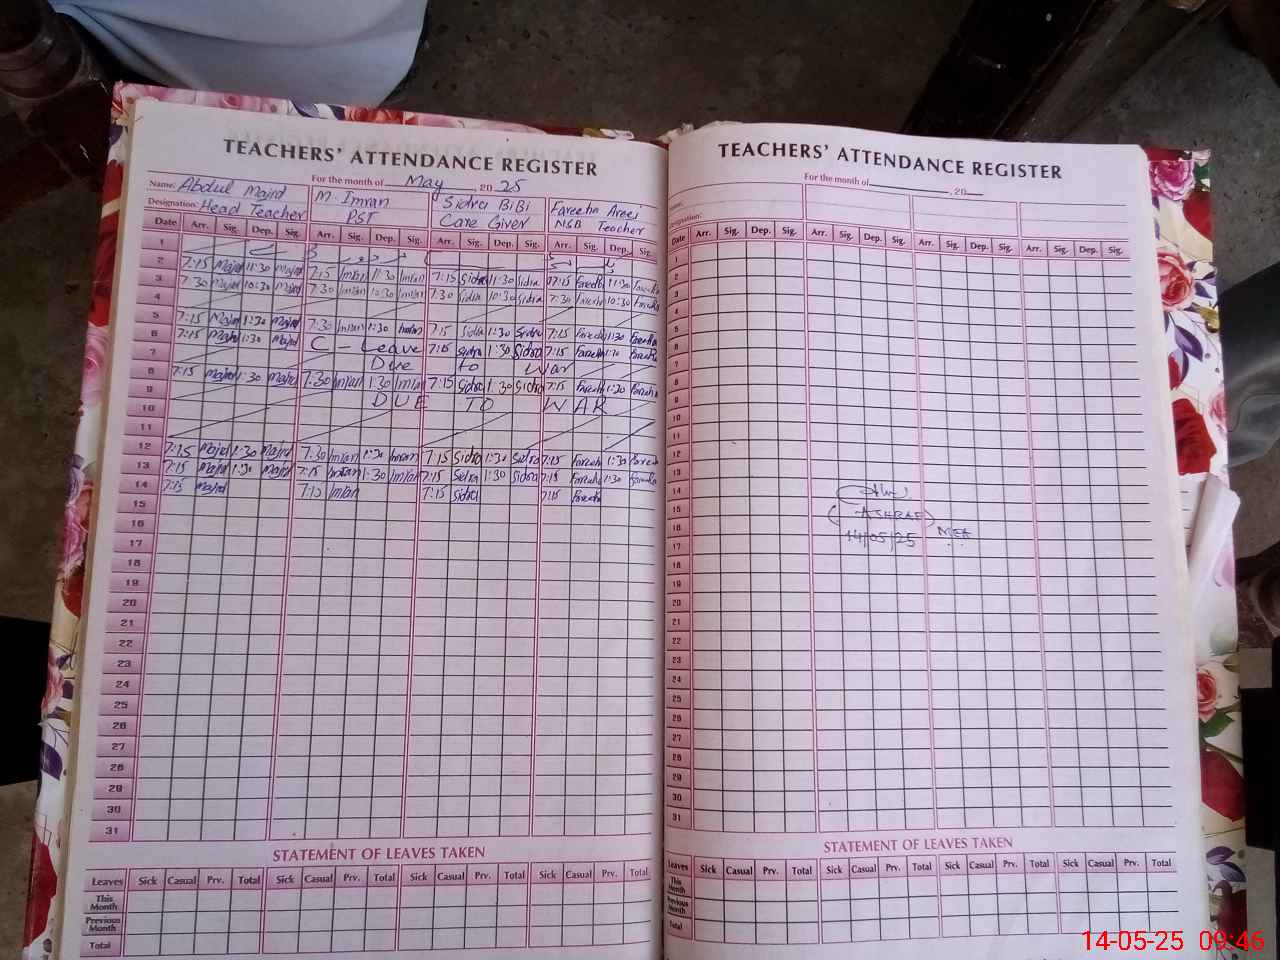 TEACHERS' ATTENDANCE REGISTER
For the month of May 20 25
Name: Abdul Majid M. Imran Sidra BiBi Fareeha
Designation: Head Teacher PST Care Giver NSB Teacher
Date Arr. Sig. Dep. Sig. Arr. Sig. Dep. Sig. Arr. Sig. Dep. Sig. Arr. Sig. Dep. Sig.
1
2 7:15 Majid 11:30 Majid 7:15 Imran 11:30 Imran 7:15 Sidra 11:30 Sidra 7:15 Fareeha 11:30 Fareeha
3 7:30 Majid 10:30 Majid 7:30 Imran 10:30 Imran 7:30 Sidra 10:30 Sidra 7:30 Fareeha 10:30 Fareeha
4
5 7:15 Majid 1:30 Majid 7:30 Imran 1:30 Imran 7:15 Sidra 1:30 Sidra 7:15 Fareeha 1:30 Fareeha
6 7:15 Majid 1:30 Majid C - Leave 7:15 Sidra 1:30 Sidra 7:15 Fareeha Fareeha
7 Due to War
8 7:15 Majid 1:30 Majid 7:30 Imran 1:30 Imran 7:15 Sidra 1:30 Sidra 7:15 Fareeha 1:30 Fareeha
9 DUE TO WAR
10
11
12 7:15 Majid 1:30 Majid 7:30 Imran 1:30 Imran 7:15 Sidra 1:30 Sidra 7:15 Fareeha 1:30 Fareeha
13 7:15 Majid 1:30 Majid 7:15 Imran 1:30 Imran 7:15 Sidra 1:30 Sidra 7:15 Fareeha 1:30 Fareeha
14 7:15 Majid 7:15 Imran 7:15 Sidra 7:15 Fareeha
15
16
17
18
19
20
21
22
23
24
25
26
27
28
29
30
31
STATEMENT OF LEAVES TAKEN
Leaves Sick Casual Prv. Total Sick Casual Prv. Total Sick Casual Prv. Total Sick Casual Prv. Total
This Month
Previous Month
Total
TEACHERS' ATTENDANCE REGISTER
For the month of , 20
Name:
Designation:
Date Arr. Sig. Dep. Sig. Arr. Sig. Dep. Sig. Arr. Sig. Dep. Sig. Arr. Sig. Dep. Sig.
1
2
3
4
5
6
7
8
9
10
11
12
13
14
15 (ASHRAF)
16 14/05/25 MEA
17
18
19
20
21
22
23
24
25
26
27
28
29
30
31
STATEMENT OF LEAVES TAKEN
Leaves Sick Casual Prv. Total Sick Casual Prv. Total Sick Casual Prv. Total Sick Casual Prv. Total
This Month
Previous Month
Total
14-05-25 09:46